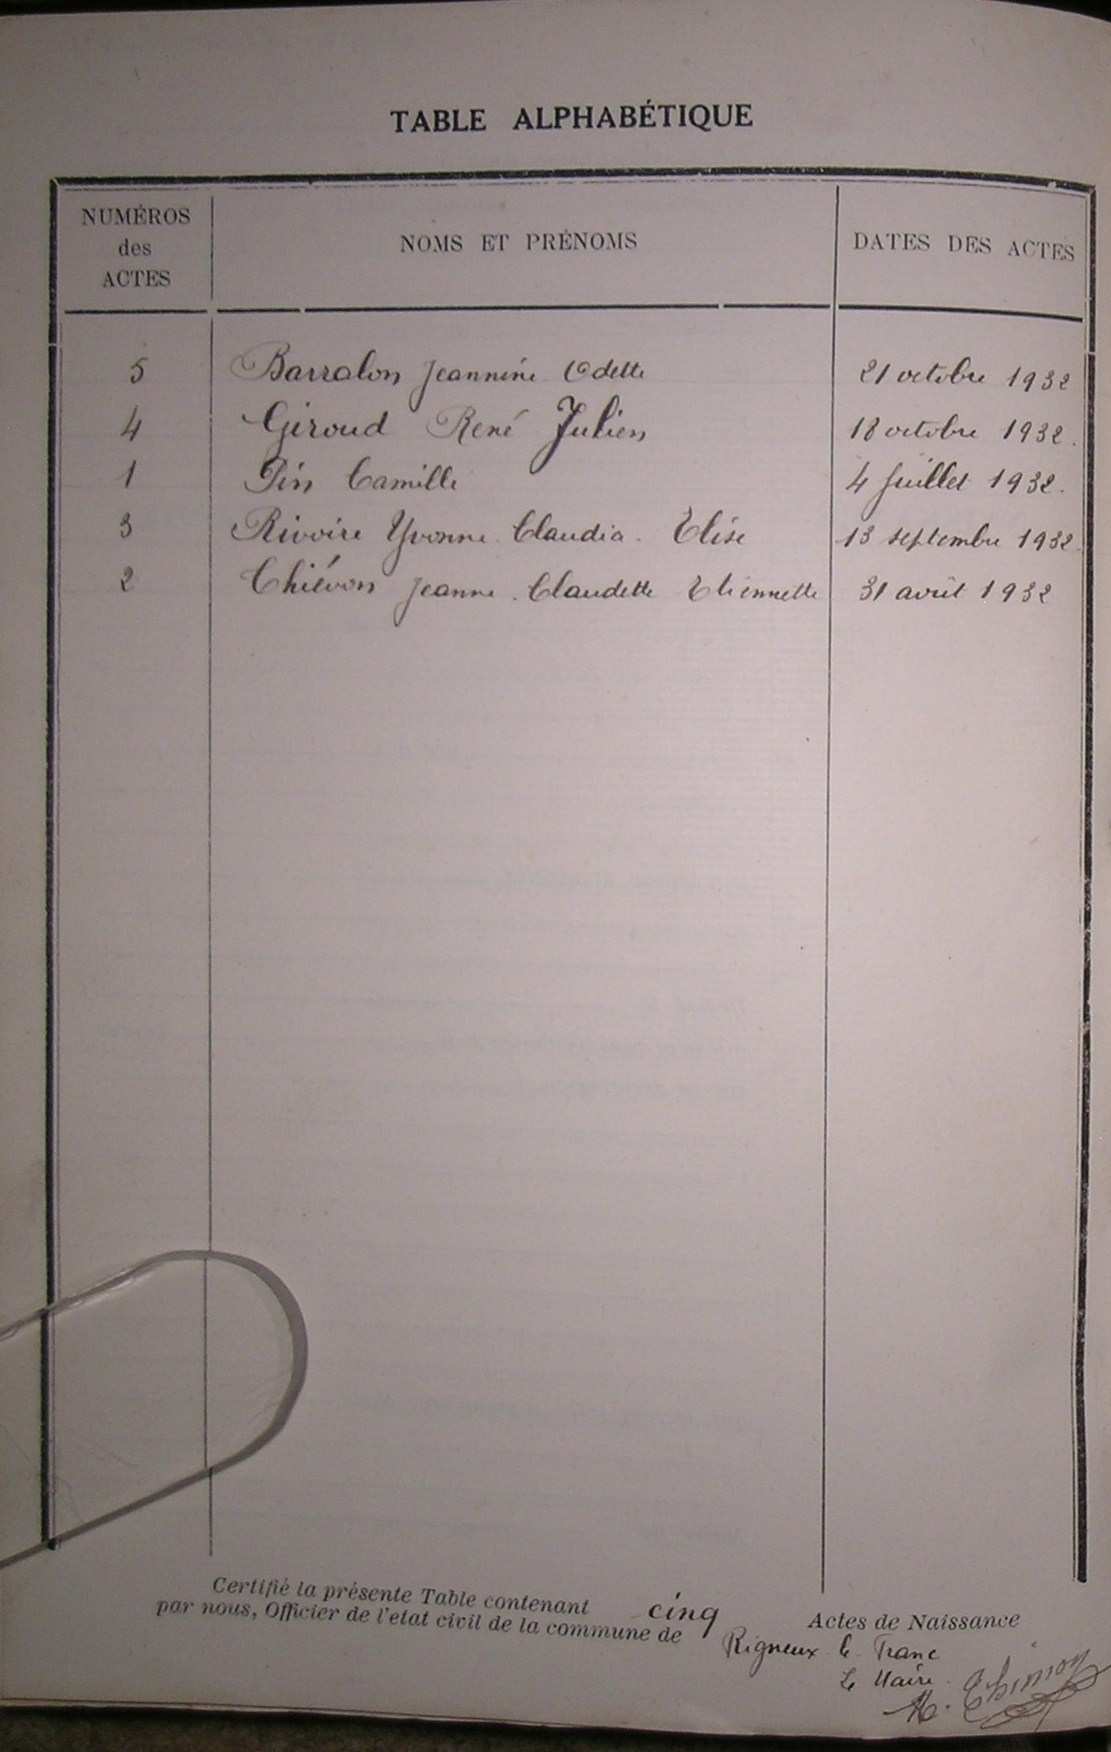 TABLE ALPHABÉTIQUE
NUMÉROS
des
ACTES
NOMS ET PRÉNOMS
DATES DES ACTES
5 Barralon Jeannine Odette 21 octobre 1932
4 Giroud René Julien 18 octobre 1932.
1 Pin Camille 4 Juillet 1932.
3 Rivoire Yvonne Claudia Elise 13 septembre 1932
2 Thiévon Jeanne Claudette Etiennette 31 août 1932
Certifié la présente Table contenant cinq Actes de Naissance
par nous, Officier de l'etat civil de la commune de Rigneux le Franc
Le Maire